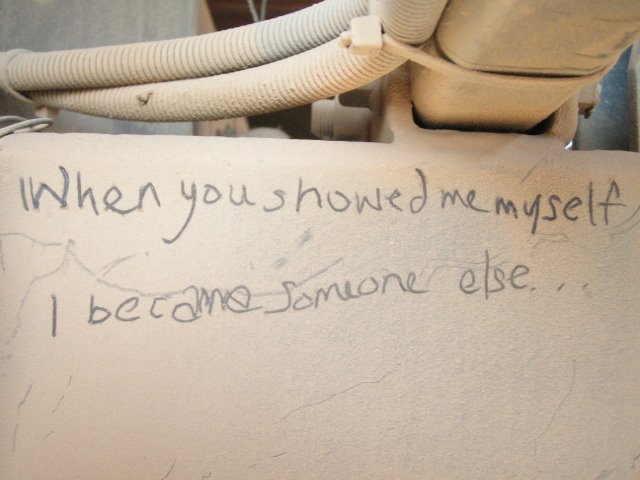 When you showed me myself
I became someone else...